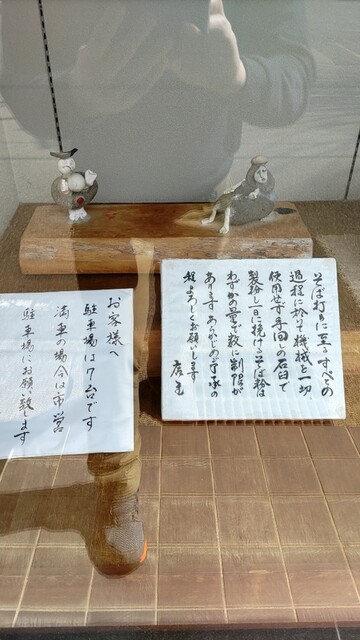 そば打ちに至るすべての
過程に於いて機械を一切、
使用せず手回しの石臼で
製粉し一日に挽けるそば粉は
わずかの量で数に制限が
あります あらかじめご了承の
程よろしくお願いします
店主
お客様へ
駐車場は7台です
満車の場合は市営
駐車場にお願い致します